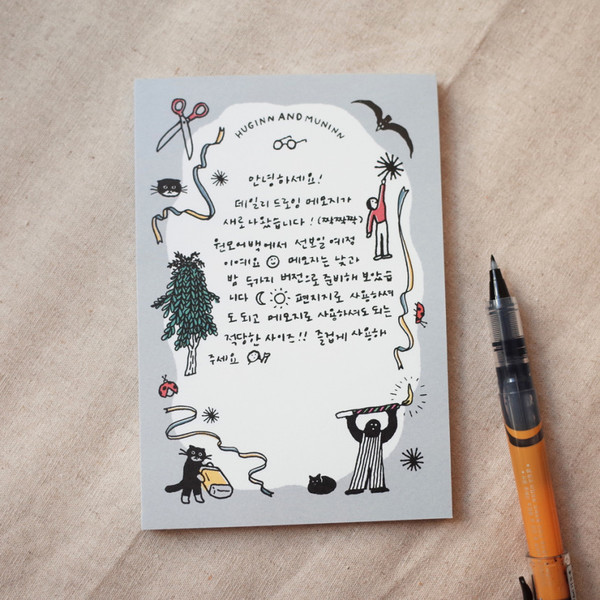 HUGINN AND MUNINN
안녕하세요!
데일리 드로잉 메모지가
새로 나왔습니다! (짝짝짝)
원모어백에서 선보일 예정
이에요 메모지는 낮과
밤 두가지 버전으로 준비해 보았습
니다 편지지로 사용하셔
도 되고 메모지로 사용하셔도 되는
적당한 사이즈!! 즐겁게 사용해
주세요